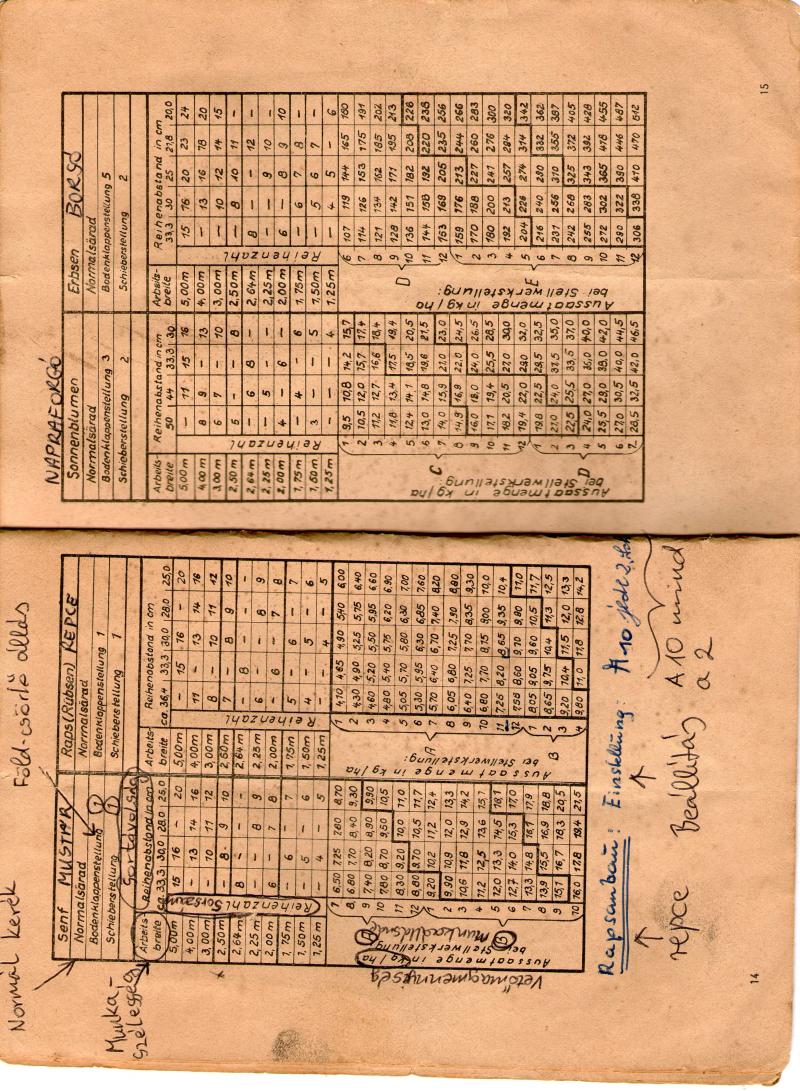 Normál kerék
Föld-csúszó állás
Munka-
szélesség
Senf MUSTÁR
Normalsärad
Bodenklappenstellung 1
Schieberstellung 1
Sortávolság
Arbeits-breite Reihenabstand in cm
ca. 33,3 30,0 28,0 25,0
Reihenzahl Sorszám
5,00m 15 16 – 20
4,00m – 13 14 16
3,00m – 10 11 12
2,50m – 8 9 10
2,64m 8 – – –
2,25m – – 8 9
2,00m 6 – 7 8
1,75m – 6 – 7
1,50m – 5 – 6
1,25m – 4 – 5
Aussaatmenge in kg/ha
bei Stellwerkstellung:
Vetőmagmennyiség
7 6,50 7,25 7,80 8,70
8 6,80 7,70 8,40 9,30
9 7,40 8,20 8,90 9,90
10 7,80 8,70 9,50 10,5
11 8,30 9,20 10,0 11,0
12 8,80 9,70 10,5 11,7
1 9,20 10,2 11,2 12,4
2 9,90 10,9 12,0 13,3
3 10,6 11,8 12,9 14,2
4 11,2 12,5 13,6 15,1
5 12,0 13,3 14,5 16,1
6 12,7 14,0 15,3 17,0
7 13,3 14,8 16,1 17,9
8 13,9 15,5 16,9 18,8
9 15,1 16,7 18,3 20,5
10 16,0 17,8 19,4 21,5
Raps (Rübsen) REPCE
Normalsärad
Bodenklappenstellung 1
Schieberstellung 1
Arbeits-breite Reihenabstand in cm
ca. 36,4 33,3 30,0 28,0 25,0
Reihenzahl
5,00m – 15 16 – 20
4,00m 11 – 13 14 16
3,00m 8 – 10 11 12
2,50m 7 – 8 9 10
2,64m – 8 – – –
2,25m 6 – – 8 9
2,00m – 6 – 7 8
1,75m 5 – 6 – 7
1,50m 4 – 5 – 6
1,25m – – 4 – 5
Aussaatmenge in kg/ha
bei Stellwerkstellung:
A
1 4,10 4,65 4,90 5,40 6,00
2 4,30 4,90 5,25 5,80 6,40
3 4,60 5,20 5,50 5,95 6,60
4 4,80 5,40 5,75 6,20 6,90
5 5,05 5,70 5,80 6,30 7,00
6 5,30 5,95 6,30 6,85 7,60
7 5,70 6,40 6,70 7,40 8,20
8 6,05 6,80 7,25 7,90 8,80
9 6,40 7,20 7,70 8,35 9,30
10 6,80 7,70 8,75 9,00 10,0
11 7,25 8,20 8,65 9,35 10,4
12 7,58 8,60 9,70 9,80 11,0
B
1 8,05 9,05 9,60 10,5 11,7
2 8,65 9,75 10,4 11,3 12,5
3 9,20 10,4 11,5 12,0 13,3
4 9,80 11,0 11,8 12,8 14,2
Rapsanbau: Einstellung: A 10
repce Beállítás A 10 mind
a 2
14
NAPRAFORGÓ
Sonnenblumen
Normalsärad
Bodenklappenstellung 3
Schieberstellung 2
Arbeits-breite Reihenabstand in cm
50 44 33,3 30
Reihenzahl
5,00m – 11 15 16
4,00m 8 9 – 13
3,00m 6 7 – 10
2,50m 5 – – 8
2,64m – 6 8 –
2,25m – 5 – –
2,00m 4 – 6 –
1,75m – 4 – 6
1,50m 3 – – 5
1,25m – – – 4
Aussaatmenge in kg/ha
bei Stellwerkstellung:
C
1 9,5 10,8 14,2 15,7
2 10,5 12,0 15,7 17,4
3 11,2 12,7 16,6 18,4
4 11,8 13,4 17,5 19,4
5 12,4 14,1 18,5 20,5
6 13,0 14,8 19,6 21,5
7 14,0 15,9 21,0 23,0
8 14,9 16,9 22,0 24,5
9 16,0 18,0 24,0 26,5
10 17,1 19,4 25,5 28,5
11 18,2 20,5 27,0 30,0
12 19,4 22,0 29,0 32,0
D
1 19,8 22,5 29,5 32,5
2 21,0 24,0 31,5 35,0
3 22,5 25,5 33,5 37,0
4 24,0 27,0 36,0 40,0
5 25,5 29,0 38,0 42,0
6 27,0 30,5 40,0 44,5
7 28,5 32,5 42,0 46,5
Erbsen BORSÓ
Normalsärad
Bodenklappenstellung 5
Schieberstellung 2
Arbeits-breite Reihenabstand in cm
33,3 30 25 21,8 20,0
Reihenzahl
5,00m 15 16 20 23 24
4,00m – 13 16 18 20
3,00m – 10 12 14 15
2,50m – 8 10 11 –
2,64m 8 – – 12 –
2,25m – – 9 10 –
2,00m 6 – 8 9 10
1,75m – 6 7 8 –
1,50m – 5 6 7 –
1,25m – 4 5 – 6
Aussaatmenge in kg/ha
bei Stellwerkstellung:
D
6 107 119 144 165 180
7 114 126 153 175 191
8 121 134 162 185 202
9 128 142 171 195 213
10 136 151 182 208 226
11 144 158 192 220 238
12 153 169 205 235 256
E
1 159 176 213 244 266
2 170 188 227 260 283
3 180 200 241 276 300
4 192 213 257 294 320
5 204 226 274 314 342
6 216 240 290 332 362
7 231 256 310 355 387
8 242 268 325 372 405
9 255 283 343 392 428
10 272 302 365 418 455
11 290 322 390 446 487
12 306 338 410 470 512
15